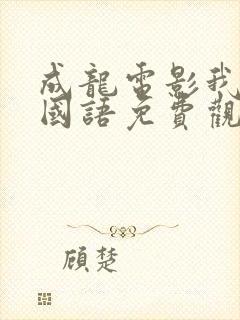 成龍電影我
國語免費觀
顧楚